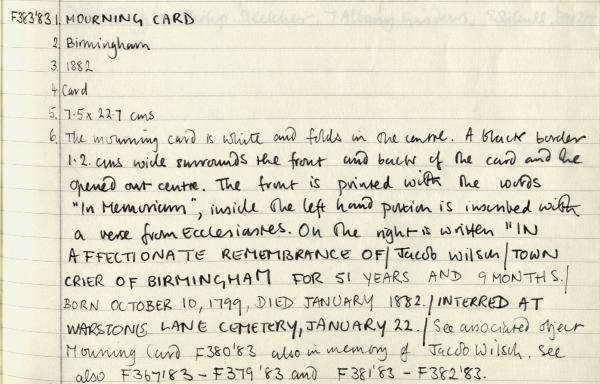 F383'83 1. MOURNING CARD
2. Birmingham
3. 1882
4. Card
5. 7.5 x 22.7 cms
6. The mourning card is white and folds in the centre. A black border
1.2. cms wide surrounds the front and back of the card and the
opened out centre. The front is printed with the words
"In Memoriam", inside the left hand portion is inscribed with
a verse from Ecclesiastes. On the right is written "IN
AFFECTIONATE REMEMBRANCE OF/ Jacob Wilson/ TOWN
CRIER OF BIRMINGHAM FOR 51 YEARS AND 9 MONTHS./
BORN OCTOBER 10, 1799, DIED JANUARY 1882./ INTERRED AT
WARSTONE LANE CEMETERY, JANUARY 22./ See associated object
Mourning Card F380'83 also in memory of Jacob Wilson. See
also F367'83 - F379'83 and F381'83 - F382'83.